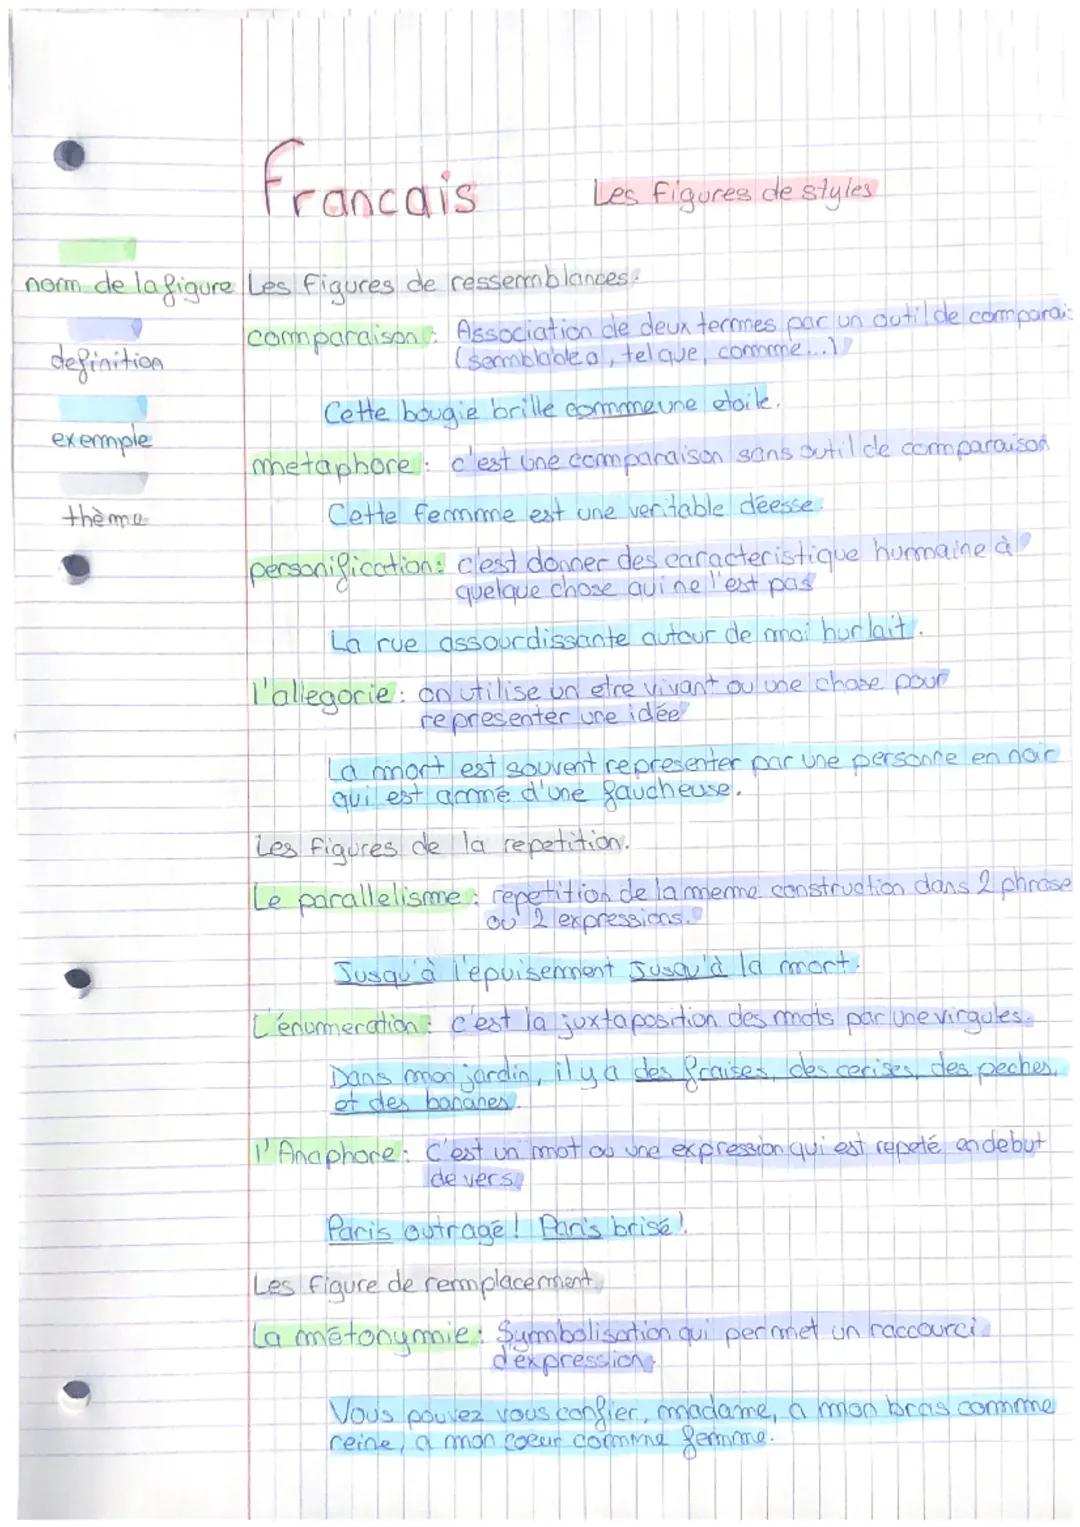 Francais
Les figures de styles
nom de la figure
definition
exemple
thème
Les figures de ressemblances.
comparaison : Association de deux termes par un outil de comparai
(semblable a, tel que, comme...)
Cette bougie brille comme une etoile.
metaphore : c'est une comparaison sans outil de comparaison
Cette femme est une veritable déesse.
personification : c'est donner des caracteristique humaine à
quelque chose qui ne l'est pas
La rue assourdissante autour de moi hurlait.
l'allegorie : on utilise un etre vivant ou une chose pour
representer une idée
La mort est souvent representer par une personne en noir
qui est armé d'une faucheuse.
Les figures de la repetition.
Le parallelisme : repetition de la meme construction dans 2 phrase
ou 2 expressions.
Jusqu'à l'epuisement Jusqu'à la mort.
L'énumeration : c'est la juxtaposition des mots par une virgules.
Dans mon jardin, il y a des fraises, des cerises, des peches,
et des bananes.
l'Anaphore : C'est un mot ou une expression qui est repeté en debut
de vers
Paris outragé ! Paris brisé !
Les figure de remplacement
La métonymie : Symbolisation qui permet un raccourci
d'expression.
Vous pouvez vous confier, madame, a mon bras comme
reine, a mon coeur comme femme.